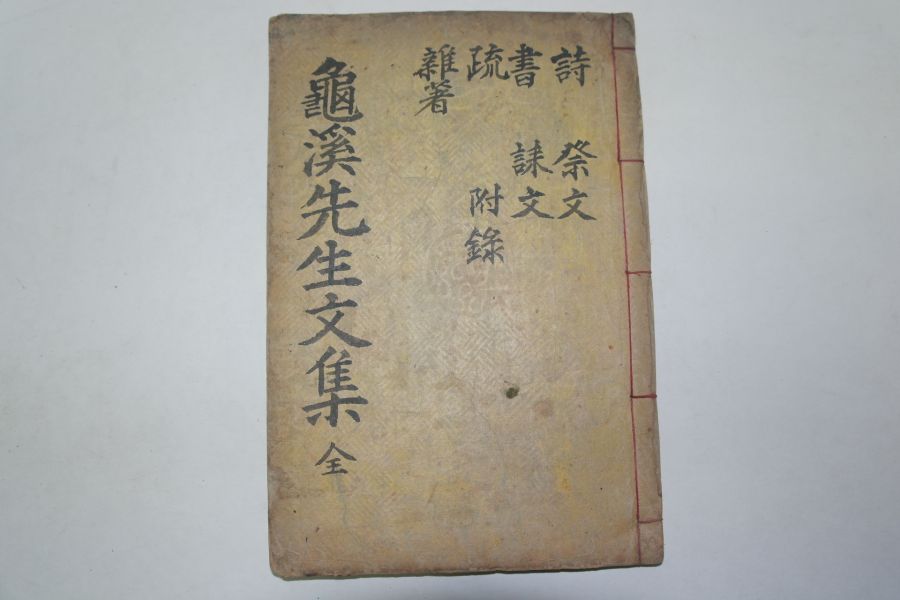 詩 祭文
書 誄文
疏 附錄
雜著
龜溪先生文集 全